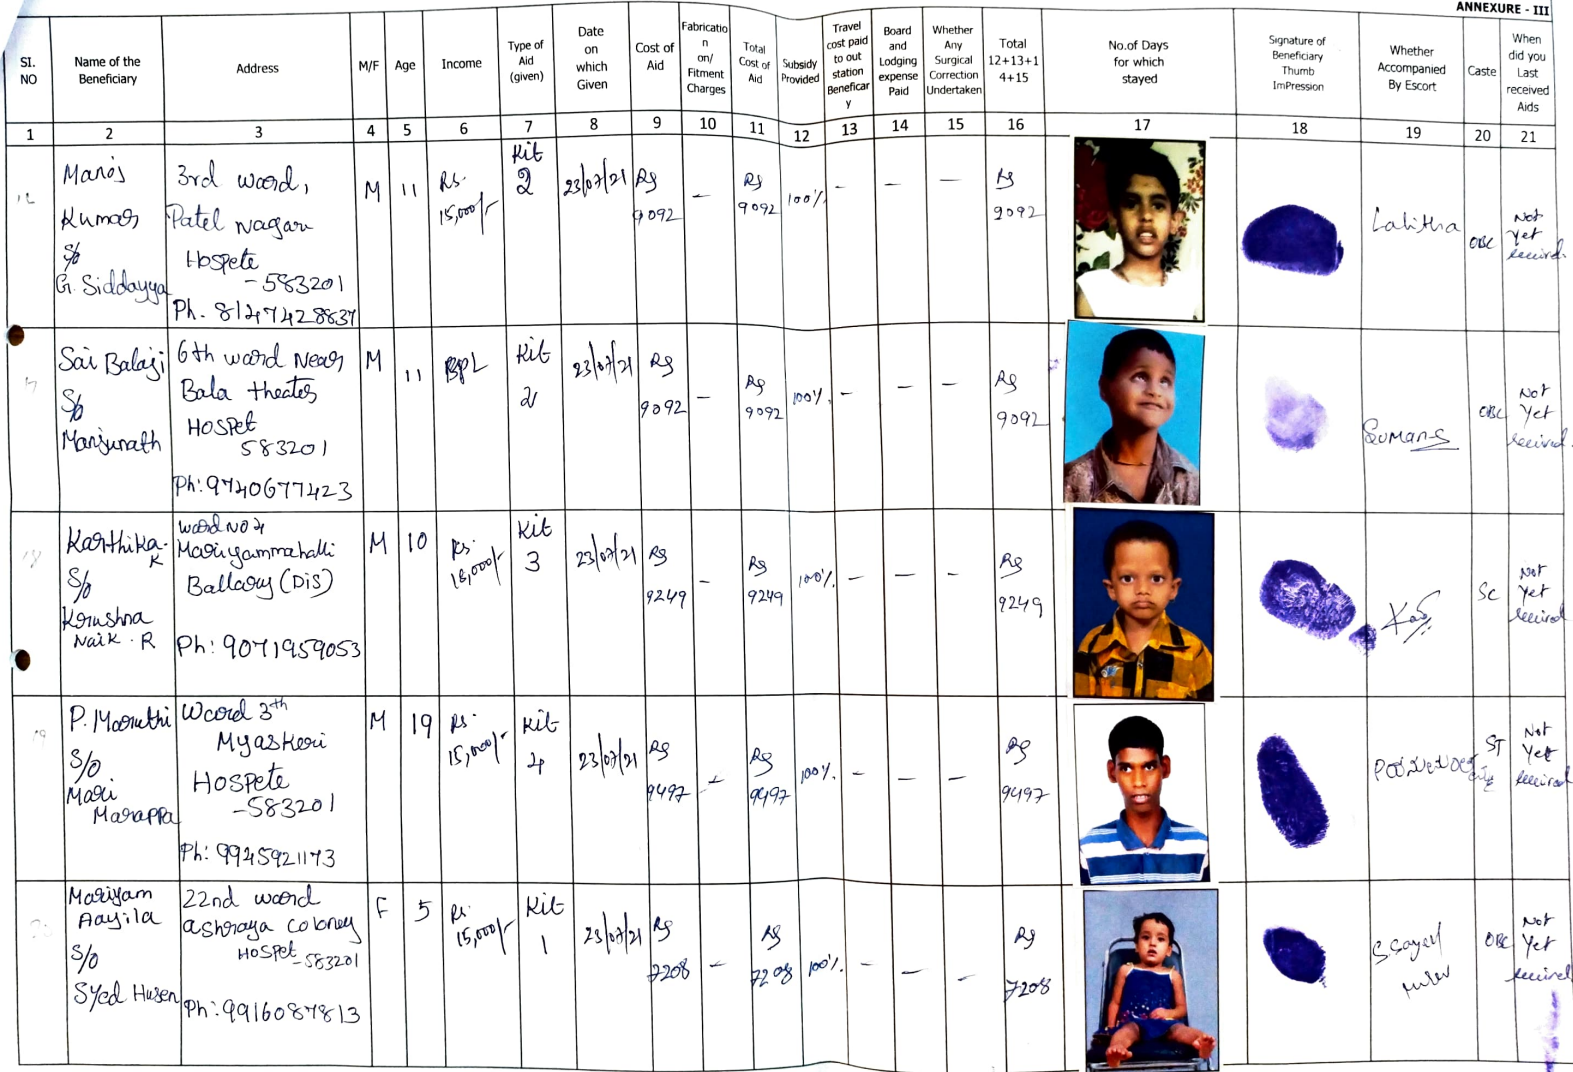 ANNEXURE - III
SI. NO
Name of the Beneficiary
Address
M/F
Age
Income
Type of Aid (given)
Date on which Given
Cost of Aid
Fabricatio n on/ Fitment Charges
Total Cost of Aid
Subsidy Provided
Travel cost paid to out station Beneficar y
Board and Lodging expense Paid
Whether Any Surgical Correction Undertaken
Total 12+13+1 4+15
No.of Days for which stayed
Signature of Beneficiary Thumb ImPression
Whether Accompanied By Escort
Caste
When did you Last received Aids
1 2 3 4 5 6 7 8 9 10 11 12 13 14 15 16 17 18 19 20 21
Manoj
Kumar
S/o
G. Siddayya
3rd ward,
Patel Nagar
Hospete
-583201
Ph. 8147428837
M
11
Rs.
15,000/-
Kit
2
23/07/21
Rs
9092
-
Rs
9092
100%
-
-
-
Rs
9092
Lalitha
OBC
Not
Yet
17
Sai Balaji
S/o
Manjunath
6th ward Near
Bala theater
HOSPet
583201
Ph: 9740677423
M
11
BPL
Kit
2
23/07/21
Rs
9092
-
Rs
9092
100%
-
-
-
Rs
9092
Suman.S
OBC
Not
Yet
18
Karthika.
K
S/o
Krushna
Naik. R
ward NO 4
Mariyammahalli
Ballary (Dis)
Ph: 9071959053
M
10
Rs.
Kit
3
23/07/21
Rs
9249
-
Rs
9249
100%
-
-
-
Rs
9249
SC
Not
Yet
19
P. Maruthi
S/o
Mari
Marappa
Ward 3th
Myaskeri
HOSPete
-583201
Ph: 9945921173
M
19
Rs.
15,000/-
Kit
4
23/07/21
Rs
9497
-
Rs
9497
100%
-
-
-
Rs
9497
ST
Not
Yet
20
Mariyam
Aayila
S/o
Syed Husen
22nd ward
ashraya coloney
HOSPet -583201
Ph: 9916087813
F
5
Rs.
15,000/-
Kit
1
23/07/21
Rs
7208
-
Rs
7208
100%
-
-
-
Rs
7208
OBC
Not
Yet